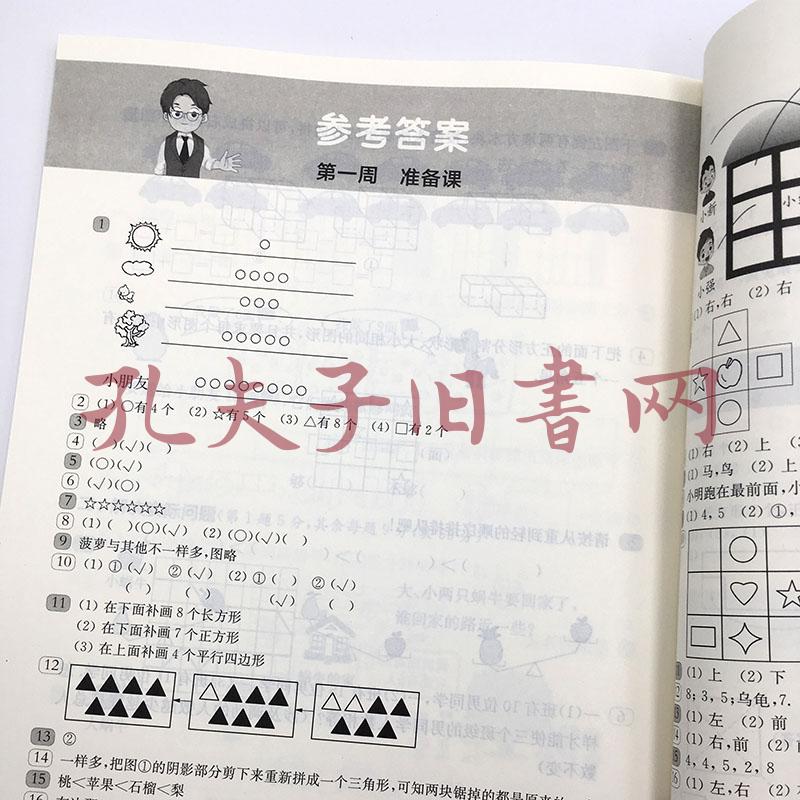 参考答案
第一周 准备课
1
○
○○○○
○○○
○○○○○
小朋友 ○○○○○○○○
2 (1) ○有4个 (2) ☆有5个 (3) △有8个 (4) □有2个
3 略
4 ( )(√)( )
5 (○)(√)
6 (√)(○)
7 ☆☆☆☆☆☆
8 (1) ( )(○)(√) (2) (○)(√)( )
9 菠萝与其他不一样多,图略
10 (1) ①(√) ②(√) (2) ①( ) ②(√)
( ) ( ) (√) ( )
11 (1) 在下面补画8个长方形
(2) 在下面补画7个正方形
(3) 在上面补画4个平行四边形
12
13 ②
14 一样多,把图①的阴影部分剪下来重新拼成一个三角形,可知两块锯掉的都是原来的
15 桃<苹果<石榴<梨
16
孔夫子旧书网
小新
小强
(1) 右,右 (2) 右
(1) 右 (2) 上
(1) 马,鸟 (2) 上
小明跑在最前面,小
(1) 4, 5 (2) ①,
(1) 上 (2) 下
8; 3, 5; 乌龟, 7.
(1) 左 (2) 前
(1) 右,前 (2) 前
4, 4, 5, 2, 8
(1) 左,右 (2)